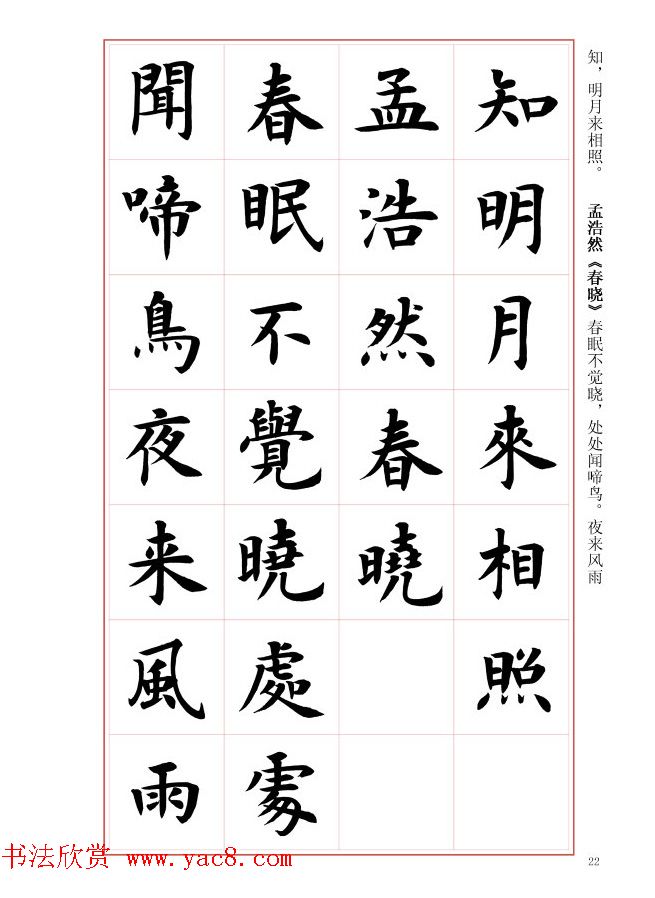 知明月來相照
孟浩然春曉
春眠不覺曉處處
聞啼鳥夜来風雨
知，明月来相照。 孟浩然《春晓》春眠不觉晓，处处闻啼鸟。夜来风雨
22
书法欣赏 www.yac8.com